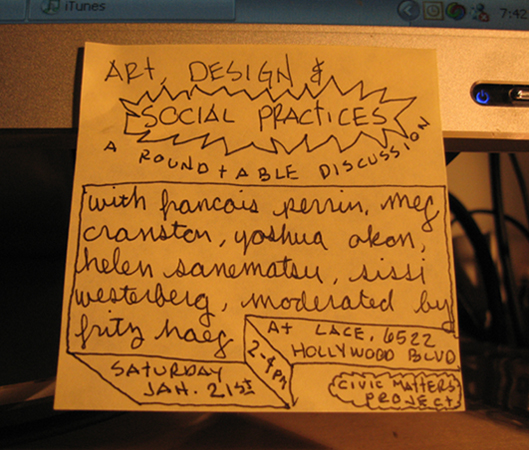 iTunes
7:42
ART, DESIGN &
SOCIAL PRACTICES
A ROUNDTABLE DISCUSSION
with francois perrin, meg
cranston, yoshua okon,
helen sanematsu, sissi
westerberg, moderated by
fritz haeg
At LACE, 6522
HOLLYWOOD BLVD
2-4pm
SATURDAY
JAN. 21st
CIVIC MATTERS
PROJECT